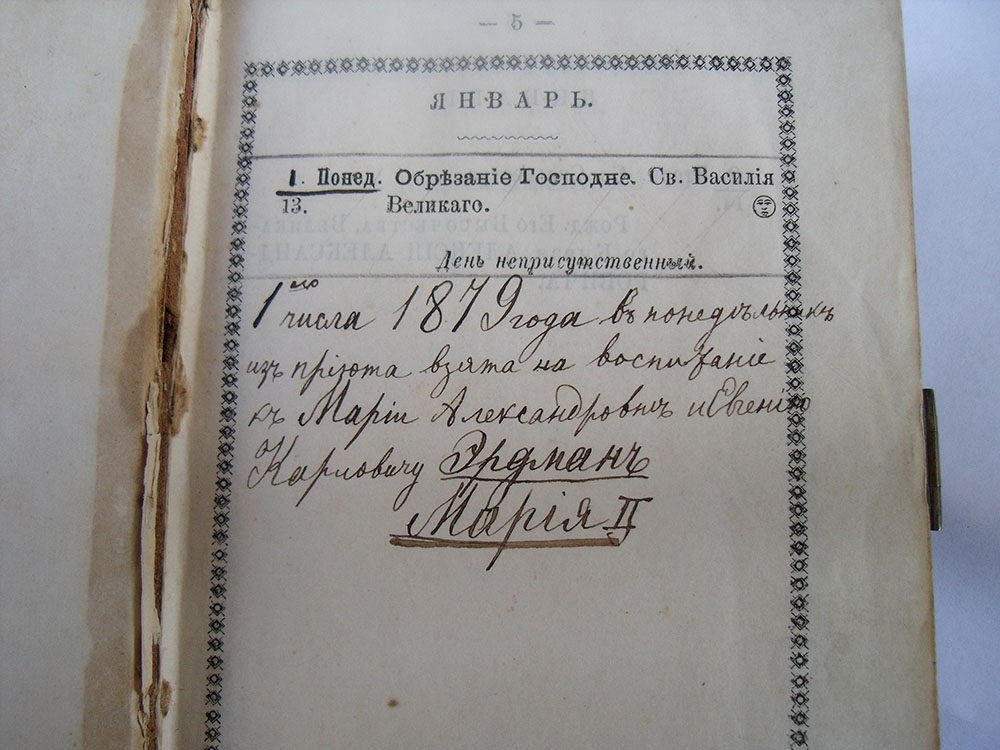 — 5 —
ЯНВАРЬ.
1. Понед. Обрѣзаніе Господне. Св. Василія
13. Великаго.
День неприсутственный.
1ого числа 1879 года въ понедѣльникъ
изъ пріюта взята на воспитаніе
къ Маріи Александровнѣ и Евгенію
Карловичу Эрдманъ
Марія II